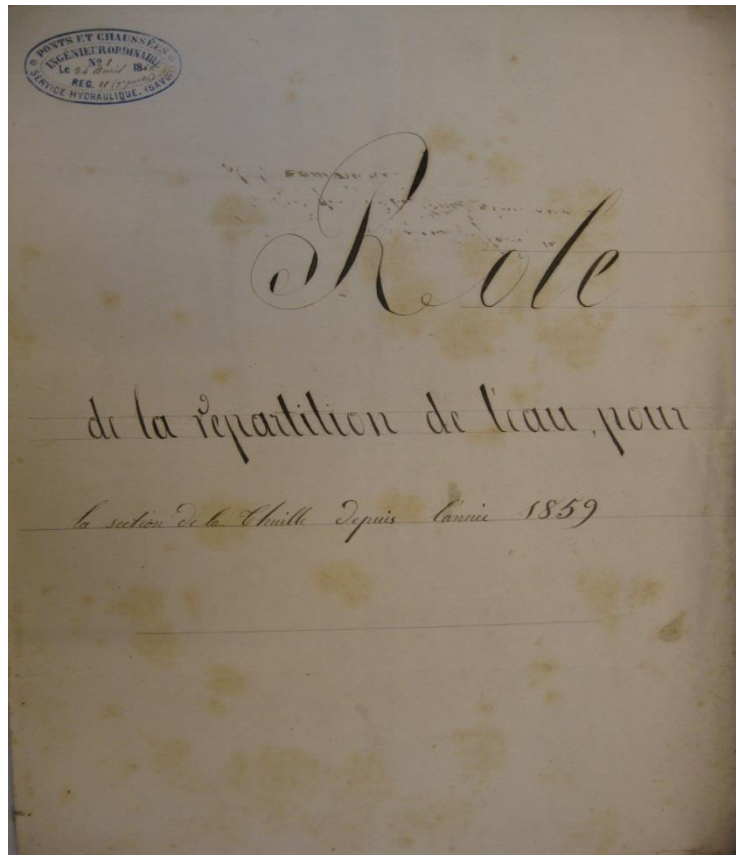 PONTS ET CHAUSSÉES
INGÉNIEUR ORDINAIRE
No 1
Le 24 Avril 18
REG. 11
SERVICE HYDRAULIQUE. (SAVOIE)
Role
de la répartition de l'eau, pour
la section de la Thuille depuis l'année 1859